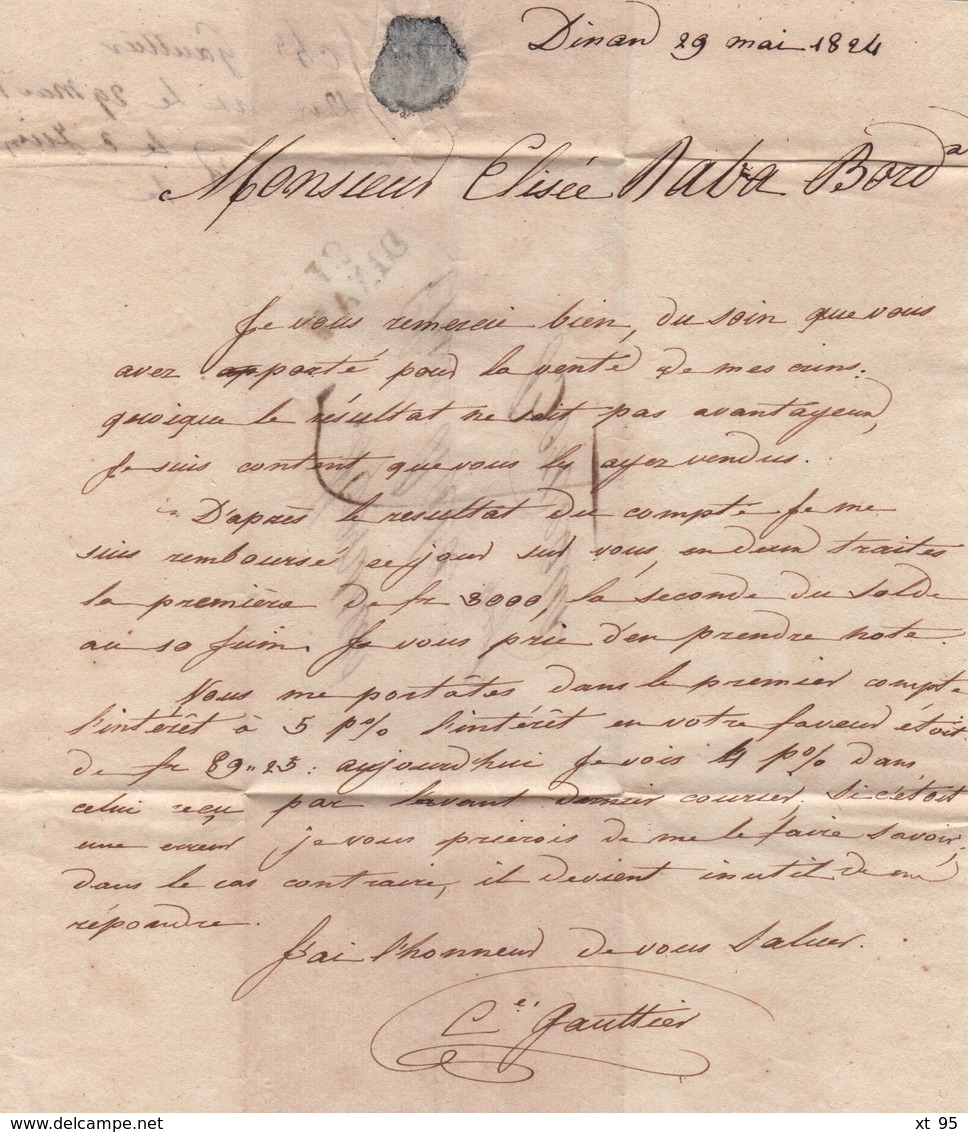 Dinan 29 mai 1824
Monsieur Elisée Naba Bord.x
Je vous remercie bien, du soin que vous
avez apporté pour la vente de mes crins.
quoique le résultat ne soit pas avantageux,
je suis content que vous les ayez vendus.
D'après le resultat du compte je me
suis remboursé ce jour sur vous, en deux traites
la première de fr 3000, la séconde du solde
au 10 juin. Je vous prie d'en prendre note
Vous me portâtes dans le premier compte
l'intérêt à 5 p% l'intérêt en votre faveur étoit
de fr 89"23: aujourdhui je vois 4 p% dans
celui reçu par lavant dernier courier, Si c'étoit
une erreur, je vous prierois de me le faire Savoir,
dans le cas contraire, il devient inutil de me
répondre.
J'ai l'honneur de vous Saluer.
Gaulthier
DINAN
21
xt 95